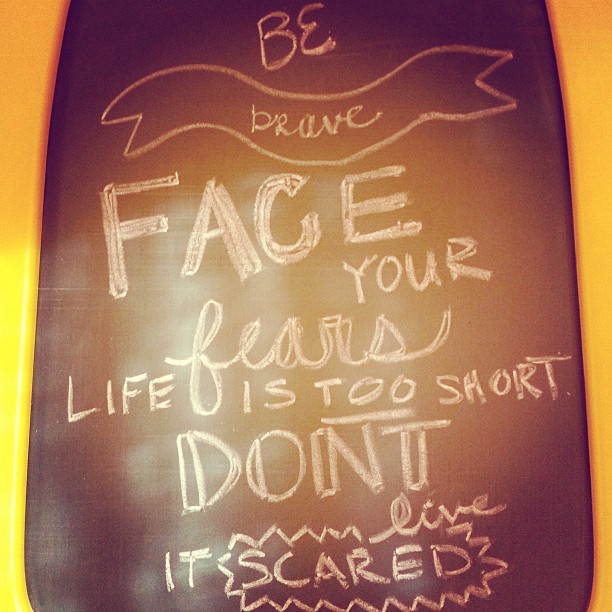 BE
brave
FACE
YOUR
fears
LIFE IS TOO SHORT.
DONT
live
IT SCARED